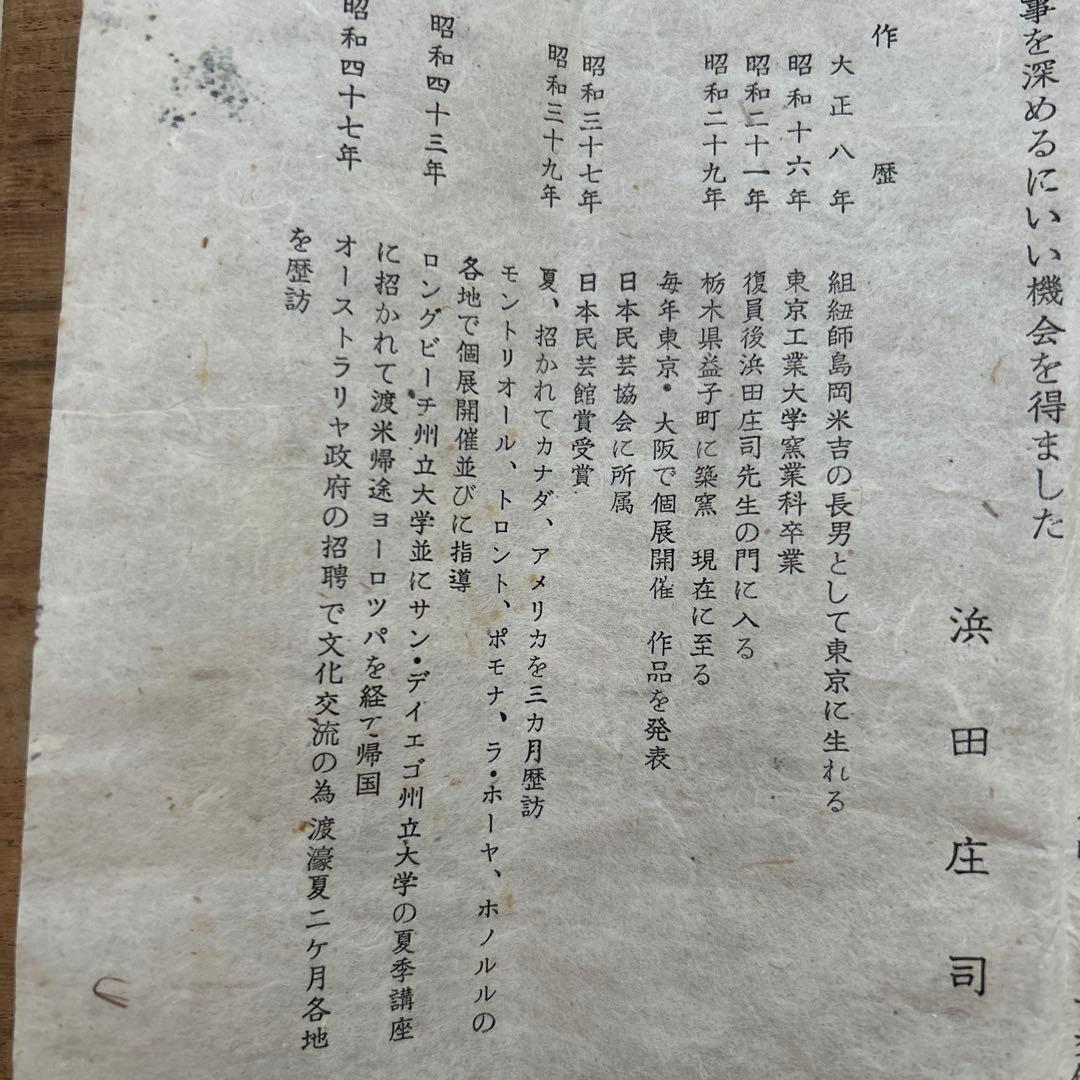 事を深めるにいい機会を得ました
浜田庄司
作歴
大正八年 組紐師島岡米吉の長男として東京に生れる
昭和十六年 東京工業大学窯業科卒業
昭和二十一年 復員後浜田庄司先生の門に入る
昭和二十九年 栃木県益子町に築窯 現在に至る
毎年東京・大阪で個展開催 作品を発表
日本民芸協会に所属
昭和三十七年 日本民芸館賞受賞
昭和三十九年 夏、招かれてカナダ、アメリカを三カ月歴訪
モントリオール、トロント、ポモナ、ラ・ホーヤ、ホノルルの
各地で個展開催並びに指導
昭和四十三年 ロングビーチ州立大学並にサン・デイエゴ州立大学の夏季講座
に招かれて渡米帰途ヨーロツパを経て帰国
昭和四十七年 オーストラリヤ政府の招聘で文化交流の為渡濠夏二ケ月各地
を歴訪